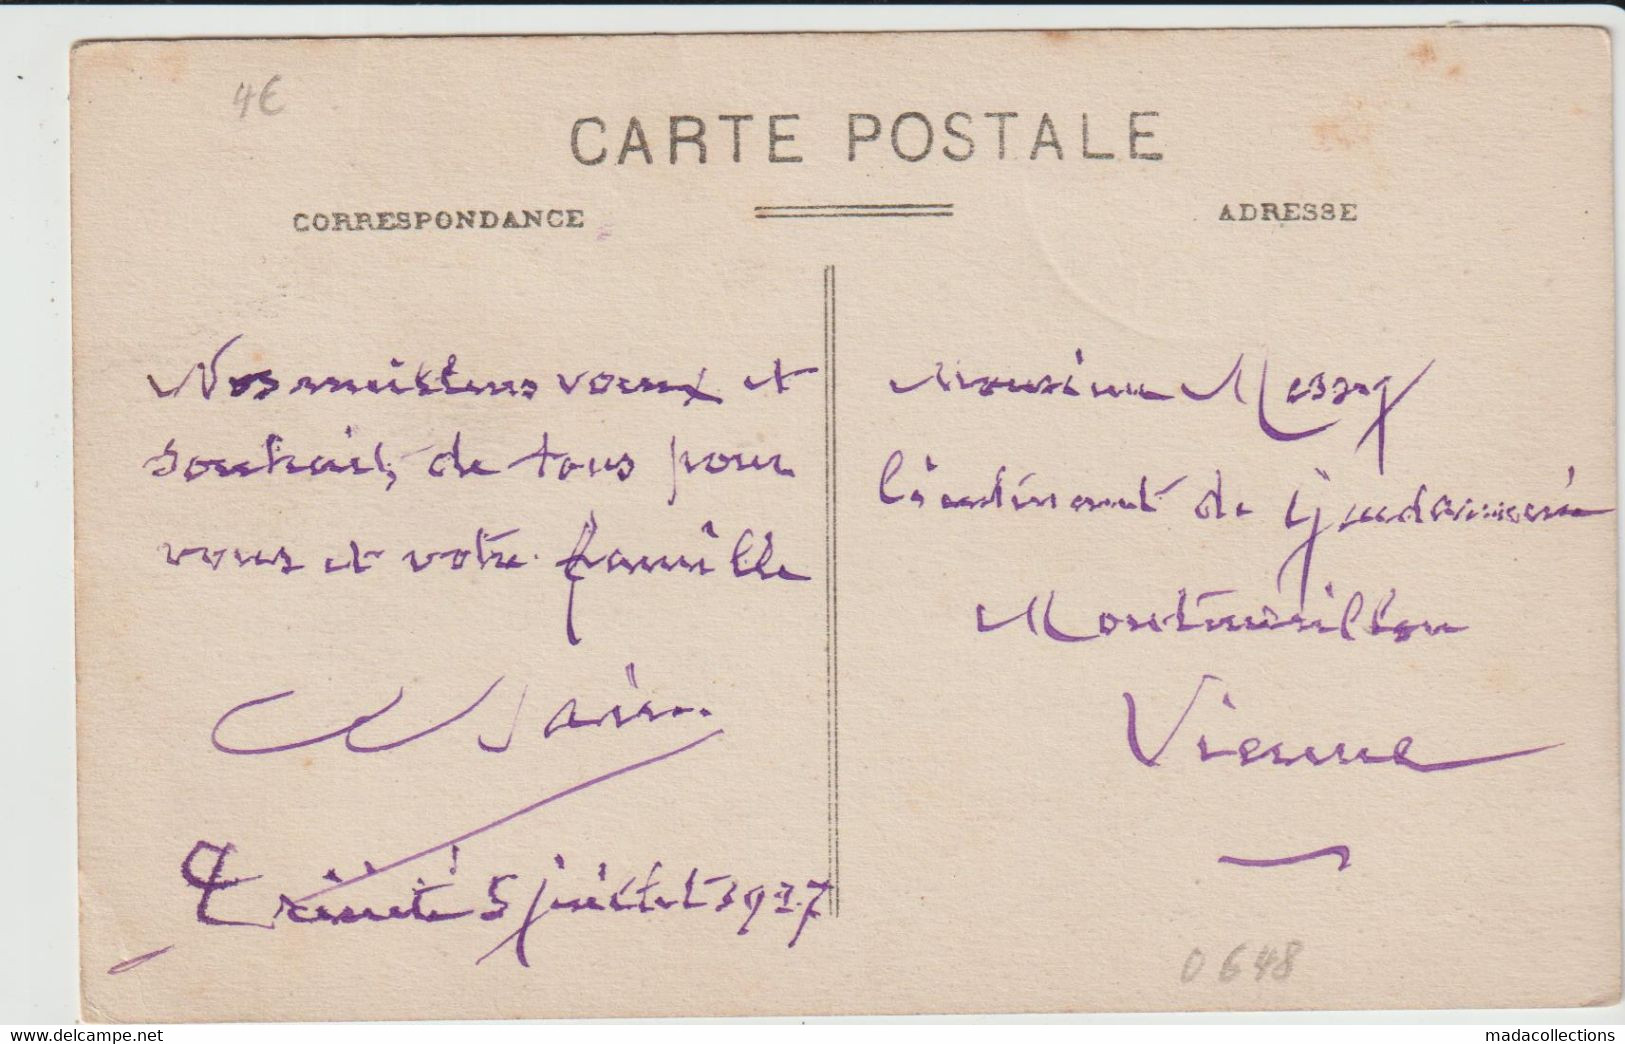 4€
CARTE POSTALE
CORRESPONDANCE
ADRESSE
Nos meilleurs voeux et
souhaits de tous pour
vous et votre famille
Trinité 5 juillet 1927
Monsieur Messy
Lieutenant de Gendarmerie
Montmorillon
Vienne
0648
www.delcampe.net
madacollections